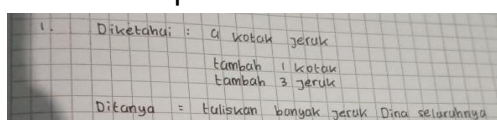 1. Diketahui : 4 kotak jeruk
tambah 1 kotak
tambah 3 jeruk
Ditanya = tuliskan banyak jeruk Dina selaruhnya